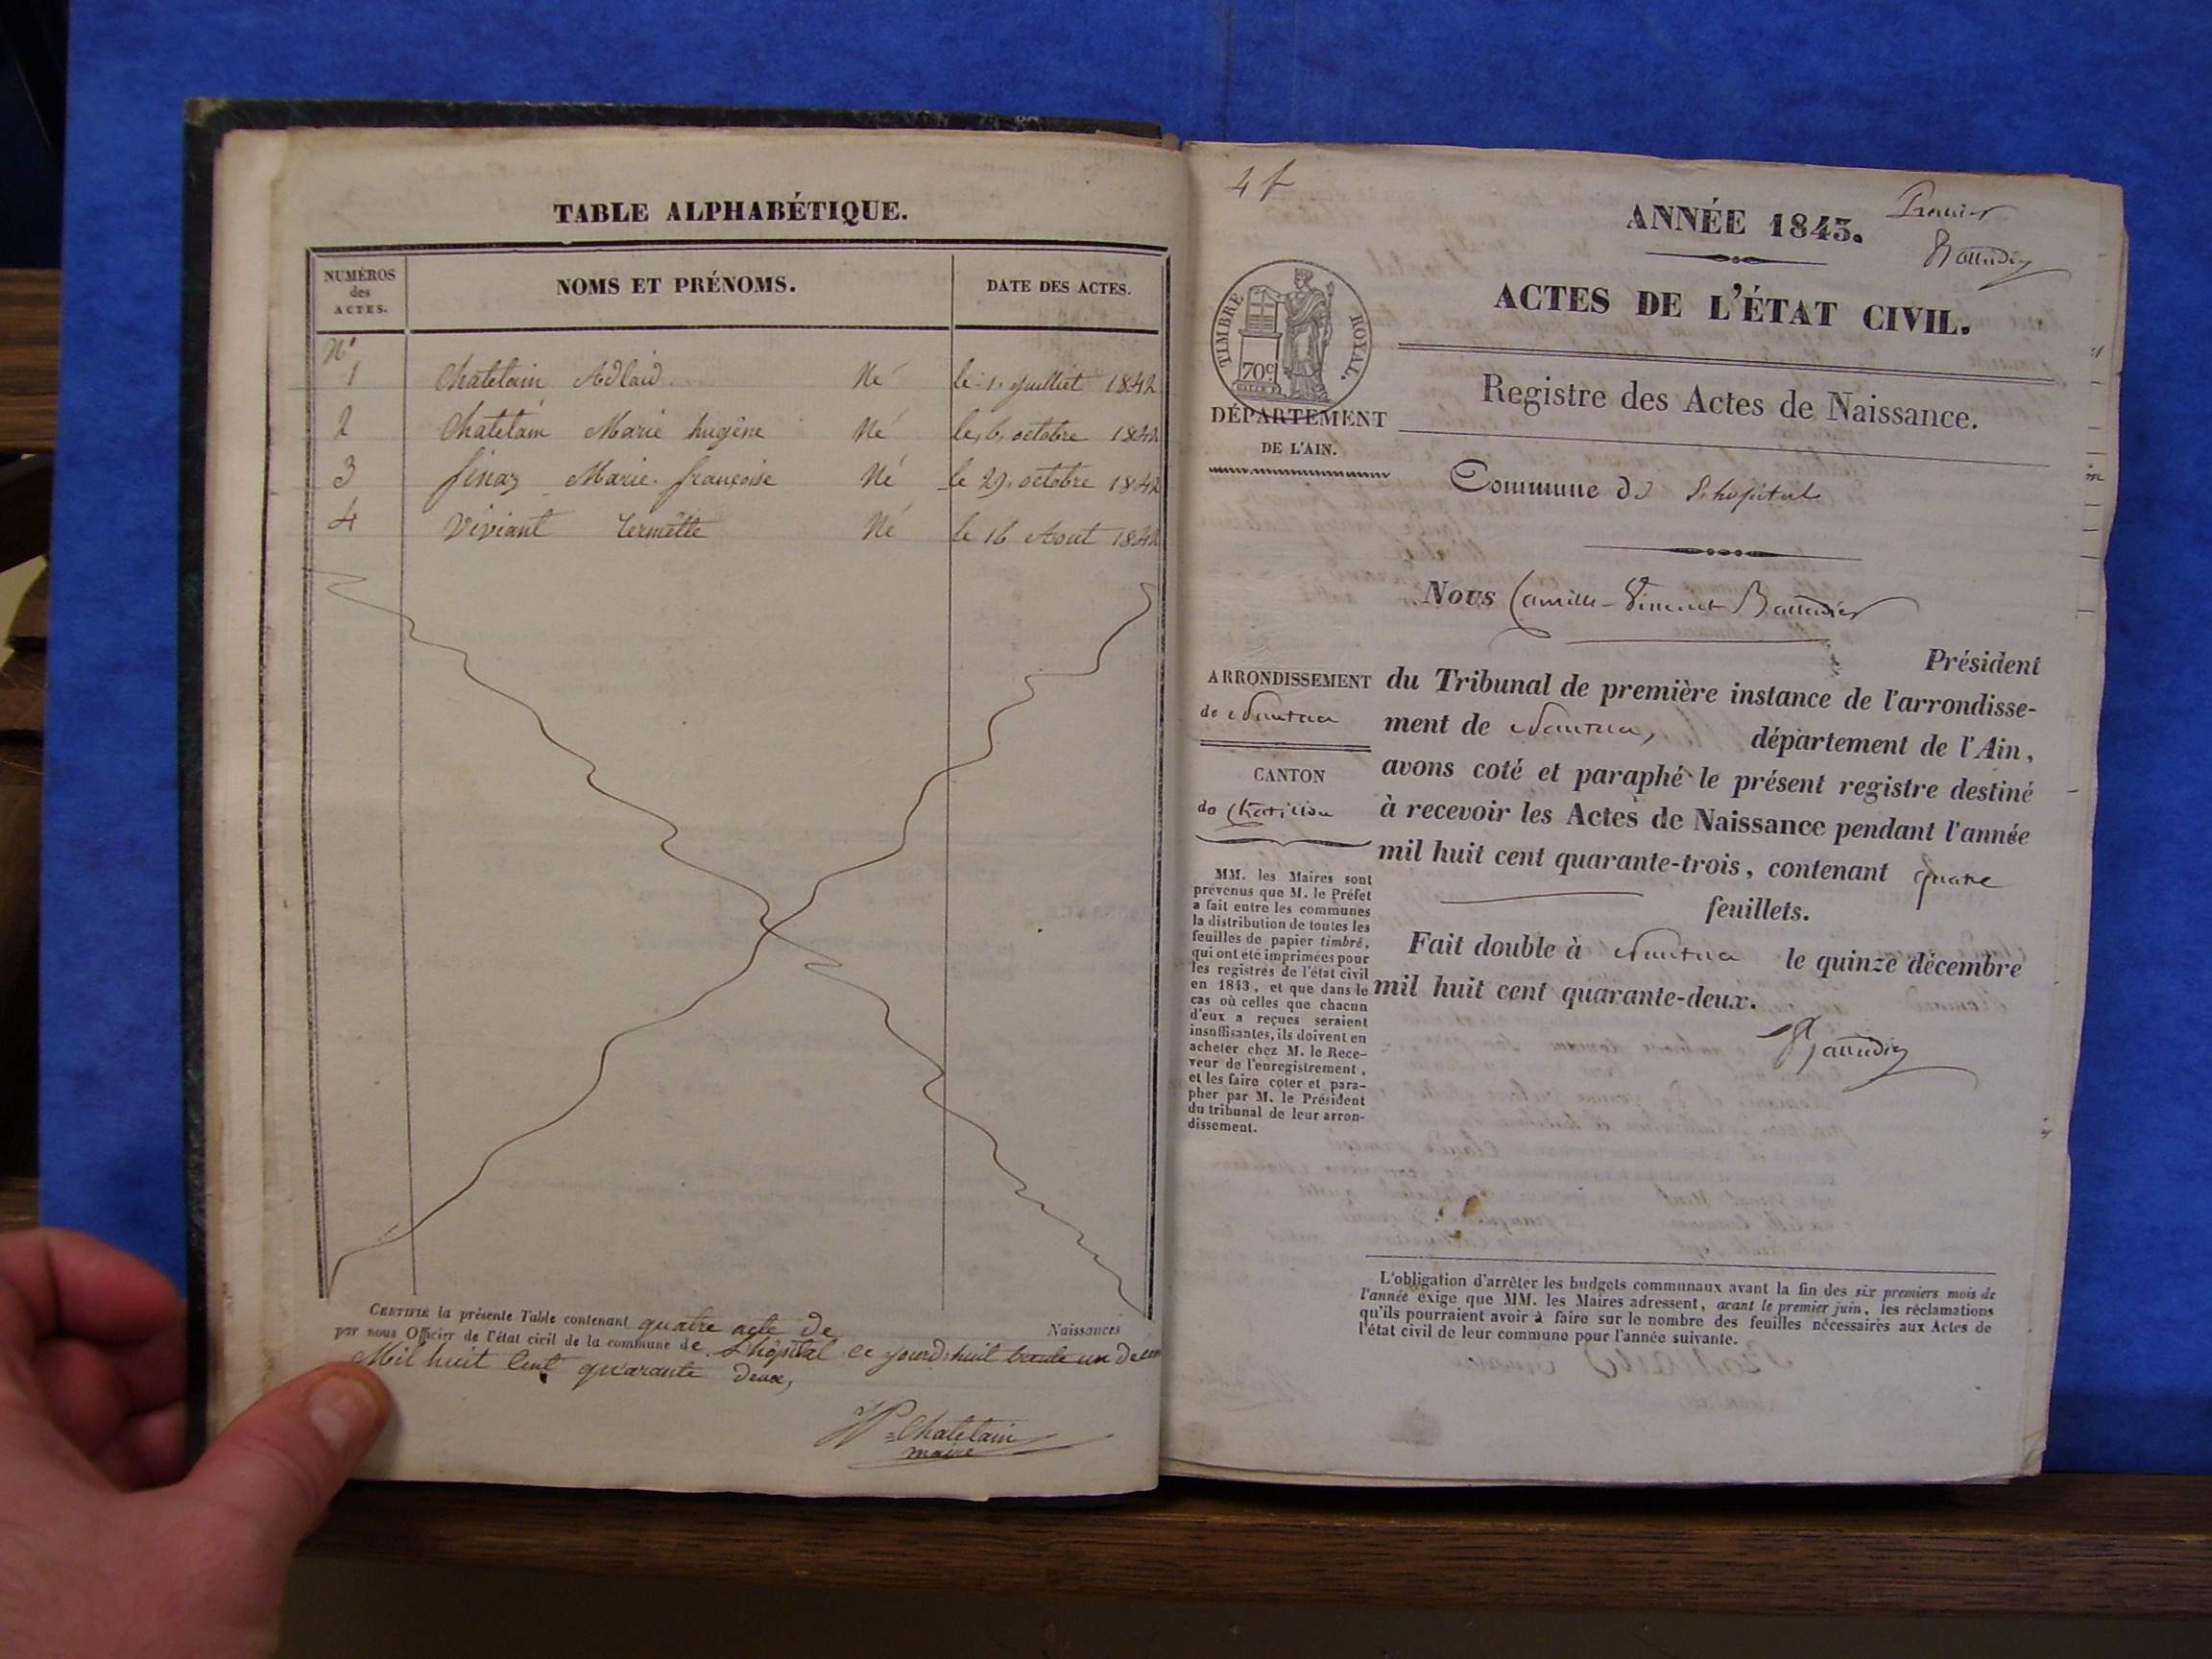 TABLE ALPHABÉTIQUE.
NUMÉROS
des
ACTES.
NOMS ET PRÉNOMS.
DATE DES ACTES.
N°
1 Chatelain Adlaid Né le 1. juilliet 1842
2 Chatelain Marie hugêne Né le, 6, octobre 1842
3 finaz Marie françoise Né le 29. octobre 1842
4 Viviant Né le 16 Aout 1842
CERTIFIÉ la présente Table contenant quatre acte de Naissances
par nous Officier de l'état civil de la commune de L'hôpital ce jourd'huit trente un
Mil huit Cent quarante deux,
Chatelain
maire
4 f
ANNÉE 1843.
Premier
ACTES DE L'ÉTAT CIVIL.
TIMBRE ROYAL.
70c
DÉPARTEMENT
DE L'AIN.
Registre des Actes de Naissance.
Commune de L'hopital
Nous Camille-Vincent
Président
du Tribunal de première instance de l'arrondisse-
ment de Nantua, département de l'Ain,
avons coté et paraphé le présent registre destiné
à recevoir les Actes de Naissance pendant l'année
mil huit cent quarante-trois, contenant quatre
feuillets.
Fait double à Nantua le quinze décembre
mil huit cent quarante-deux.
ARRONDISSEMENT
de Nantua
CANTON
de Chatillon
MM. les Maires sont
prévenus que M. le Préfet
a fait entre les communes
la distribution de toutes les
feuilles de papier timbré,
qui ont été imprimées pour
les registres de l'état civil
en 1843, et que dans le
cas où celles que chacun
d'eux a reçues seraient
insuffisantes, ils doivent en
acheter chez M. le Rece-
veur de l'enregistrement,
et les faire coter et para-
pher par M. le Président
du tribunal de leur arron-
dissement.
L'obligation d'arrêter les budgets communaux avant la fin des six premiers mois de
l'année exige que MM. les Maires adressent, avant le premier juin, les réclamations
qu'ils pourraient avoir à faire sur le nombre des feuilles nécessaires aux Actes de
l'état civil de leur commune pour l'année suivante.